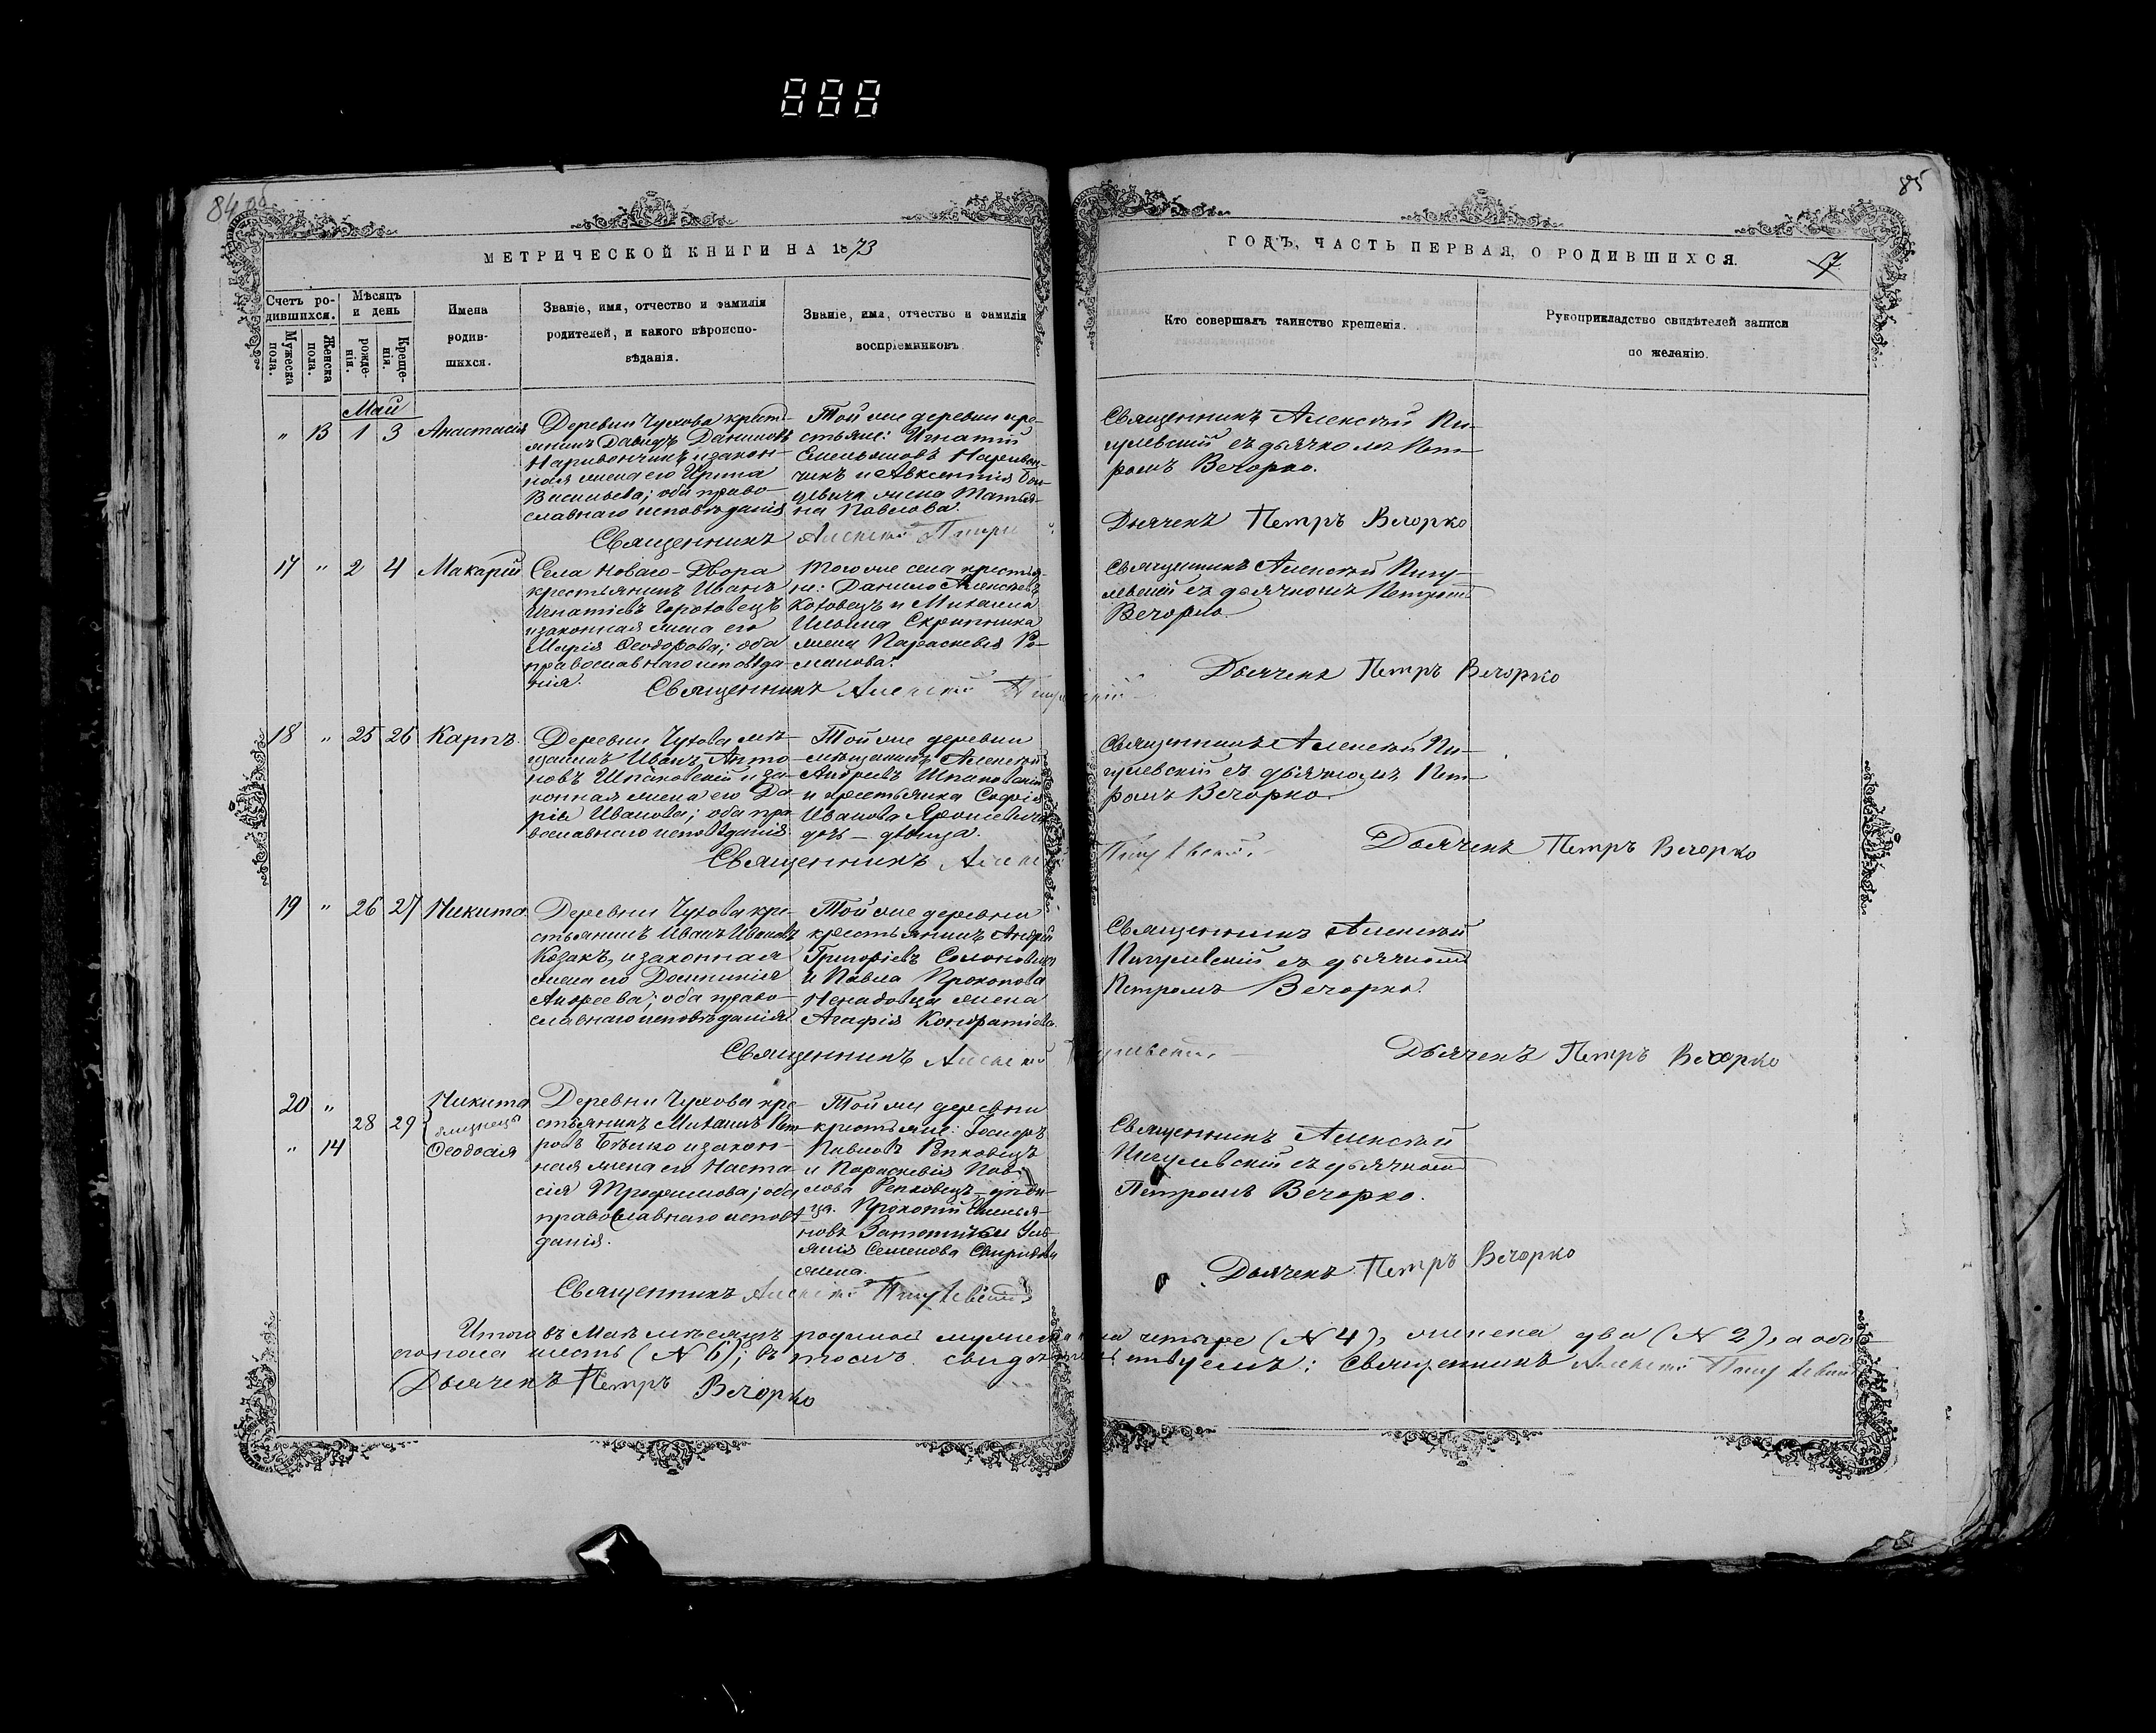 84 об
85
МЕТРИЧЕСКОЙ КНИГИ НА 1873
ГОДЪ, ЧАСТЬ ПЕРВАЯ, О РОДИВШИХСЯ.
7
Счетъ ро-
дившихся.
Мужеска пола.
Женска пола.
Мѣсяцъ
и день
рожде-
нія.
Креще-
нія.
Имена
родив-
шихся.
Званіе, имя, отчество и фамилія
родителей, и какого вѣроиспо-
вѣданія.
Званіе, имя, отчество и фамилія
воспріемниковъ.
Кто совершалъ таинство крещенія.
Рукоприкладство свидѣтелей записи
по желанію.
Май
" 13 1 3 Анастасія
Деревни Чухова кресть-
янинъ Давидъ Даниловъ
Наривончикъ и закон-
ная жена его Ирина
Васильева; оба право-
славнаго исповѣданія
Той же деревни кре-
стьяне: Игнатій
Емельяновъ Наривон-
чикъ и Авксентія
жена Татья-
на Павлова.
Священникъ Алексѣй Пи-
гулевскій съ дьячкомъ Пет-
ромъ Вечорко.
Священникъ Алексѣй
Дьячекъ Петръ Вечорко
17 " 2 4 Макарій
Села Новаго-Двора
крестьянинъ Иванъ
Игнатіевъ Гороховецъ
и законная жена его
Марія Ѳеодорова; оба
православнаго исповѣда-
нія.
Того же села крестья-
не: Данило Алексѣевъ
Коховецъ и Михаила
Ильина Скрипника
жена Параскевія Ро-
манова.
Священникъ Алексѣй Пигу-
левскій съ дьячкомъ Петромъ
Вечорко
Священникъ Алексѣй Пигулевскій
Дьячекъ Петръ Вечорко
18 " 25 26 Карпъ.
Деревни Чухова мѣ-
щанинъ Иванъ Анто-
новъ Шпаковскій и за-
конная жена его Да-
рія Иванова; оба пра-
вославнаго исповѣданія.
Той же деревни
мѣщанинъ Алексѣй
Андреевъ Шпаковскій
и крестьянка Софія
Иванова
дочь - дѣвица.
Священникъ Алексѣй Пи-
гулевскій съ дьячкомъ Пет-
ромъ Вечорко
Священникъ Алексѣй Пигулевскій
Дьячекъ Петръ Вечорко
19 " 26 27 Никита
Деревни Чухова кре-
стьянинъ Иванъ Ивановъ
Козакъ, и законная
жена его Домникія
Андреева; оба право-
славнаго исповѣданія.
Той же деревни
крестьянинъ Андрей
Григоріевъ Солоновичъ
и Павла Прокопова
Ненадовца жена
Агафія Кондратіева.
Священникъ Алексѣй
Пигулевскій съ дьячкомъ
Петромъ Вечорко.
Священникъ Алексѣй Пигулевскій
Дьячекъ Петръ Вечорко
20 " Никита
28 29 близнецы
" 14 Ѳеодосія
Деревни Чухова кре-
стьянинъ Михаилъ Пет-
ровъ и закон-
ная жена его Наста-
сія Трофимова; оба
православнаго исповѣ-
данія.
Той же деревни
крестьяне: Іосифъ
Павловъ Репковецъ
и Параскевія Пав-
лова Репковецъ - дѣви-
ца. Прокопій Емелья-
новъ и Уль-
янія Семенова
жена.
Священникъ Алексѣй
Пигулевскій съ дьячкомъ
Петромъ Вечорко.
Священникъ Алексѣй Пигулевскій
Дьячекъ Петръ Вечорко
Итого въ Маѣ мѣсяцѣ родилось мужеска пола четыре (№ 4), женска два (№ 2), а обо-
его пола шесть (№ 6); въ томъ свидѣтельствуемъ: Священникъ Алексѣй Пигулевскій
Дьячекъ Петръ Вечорко